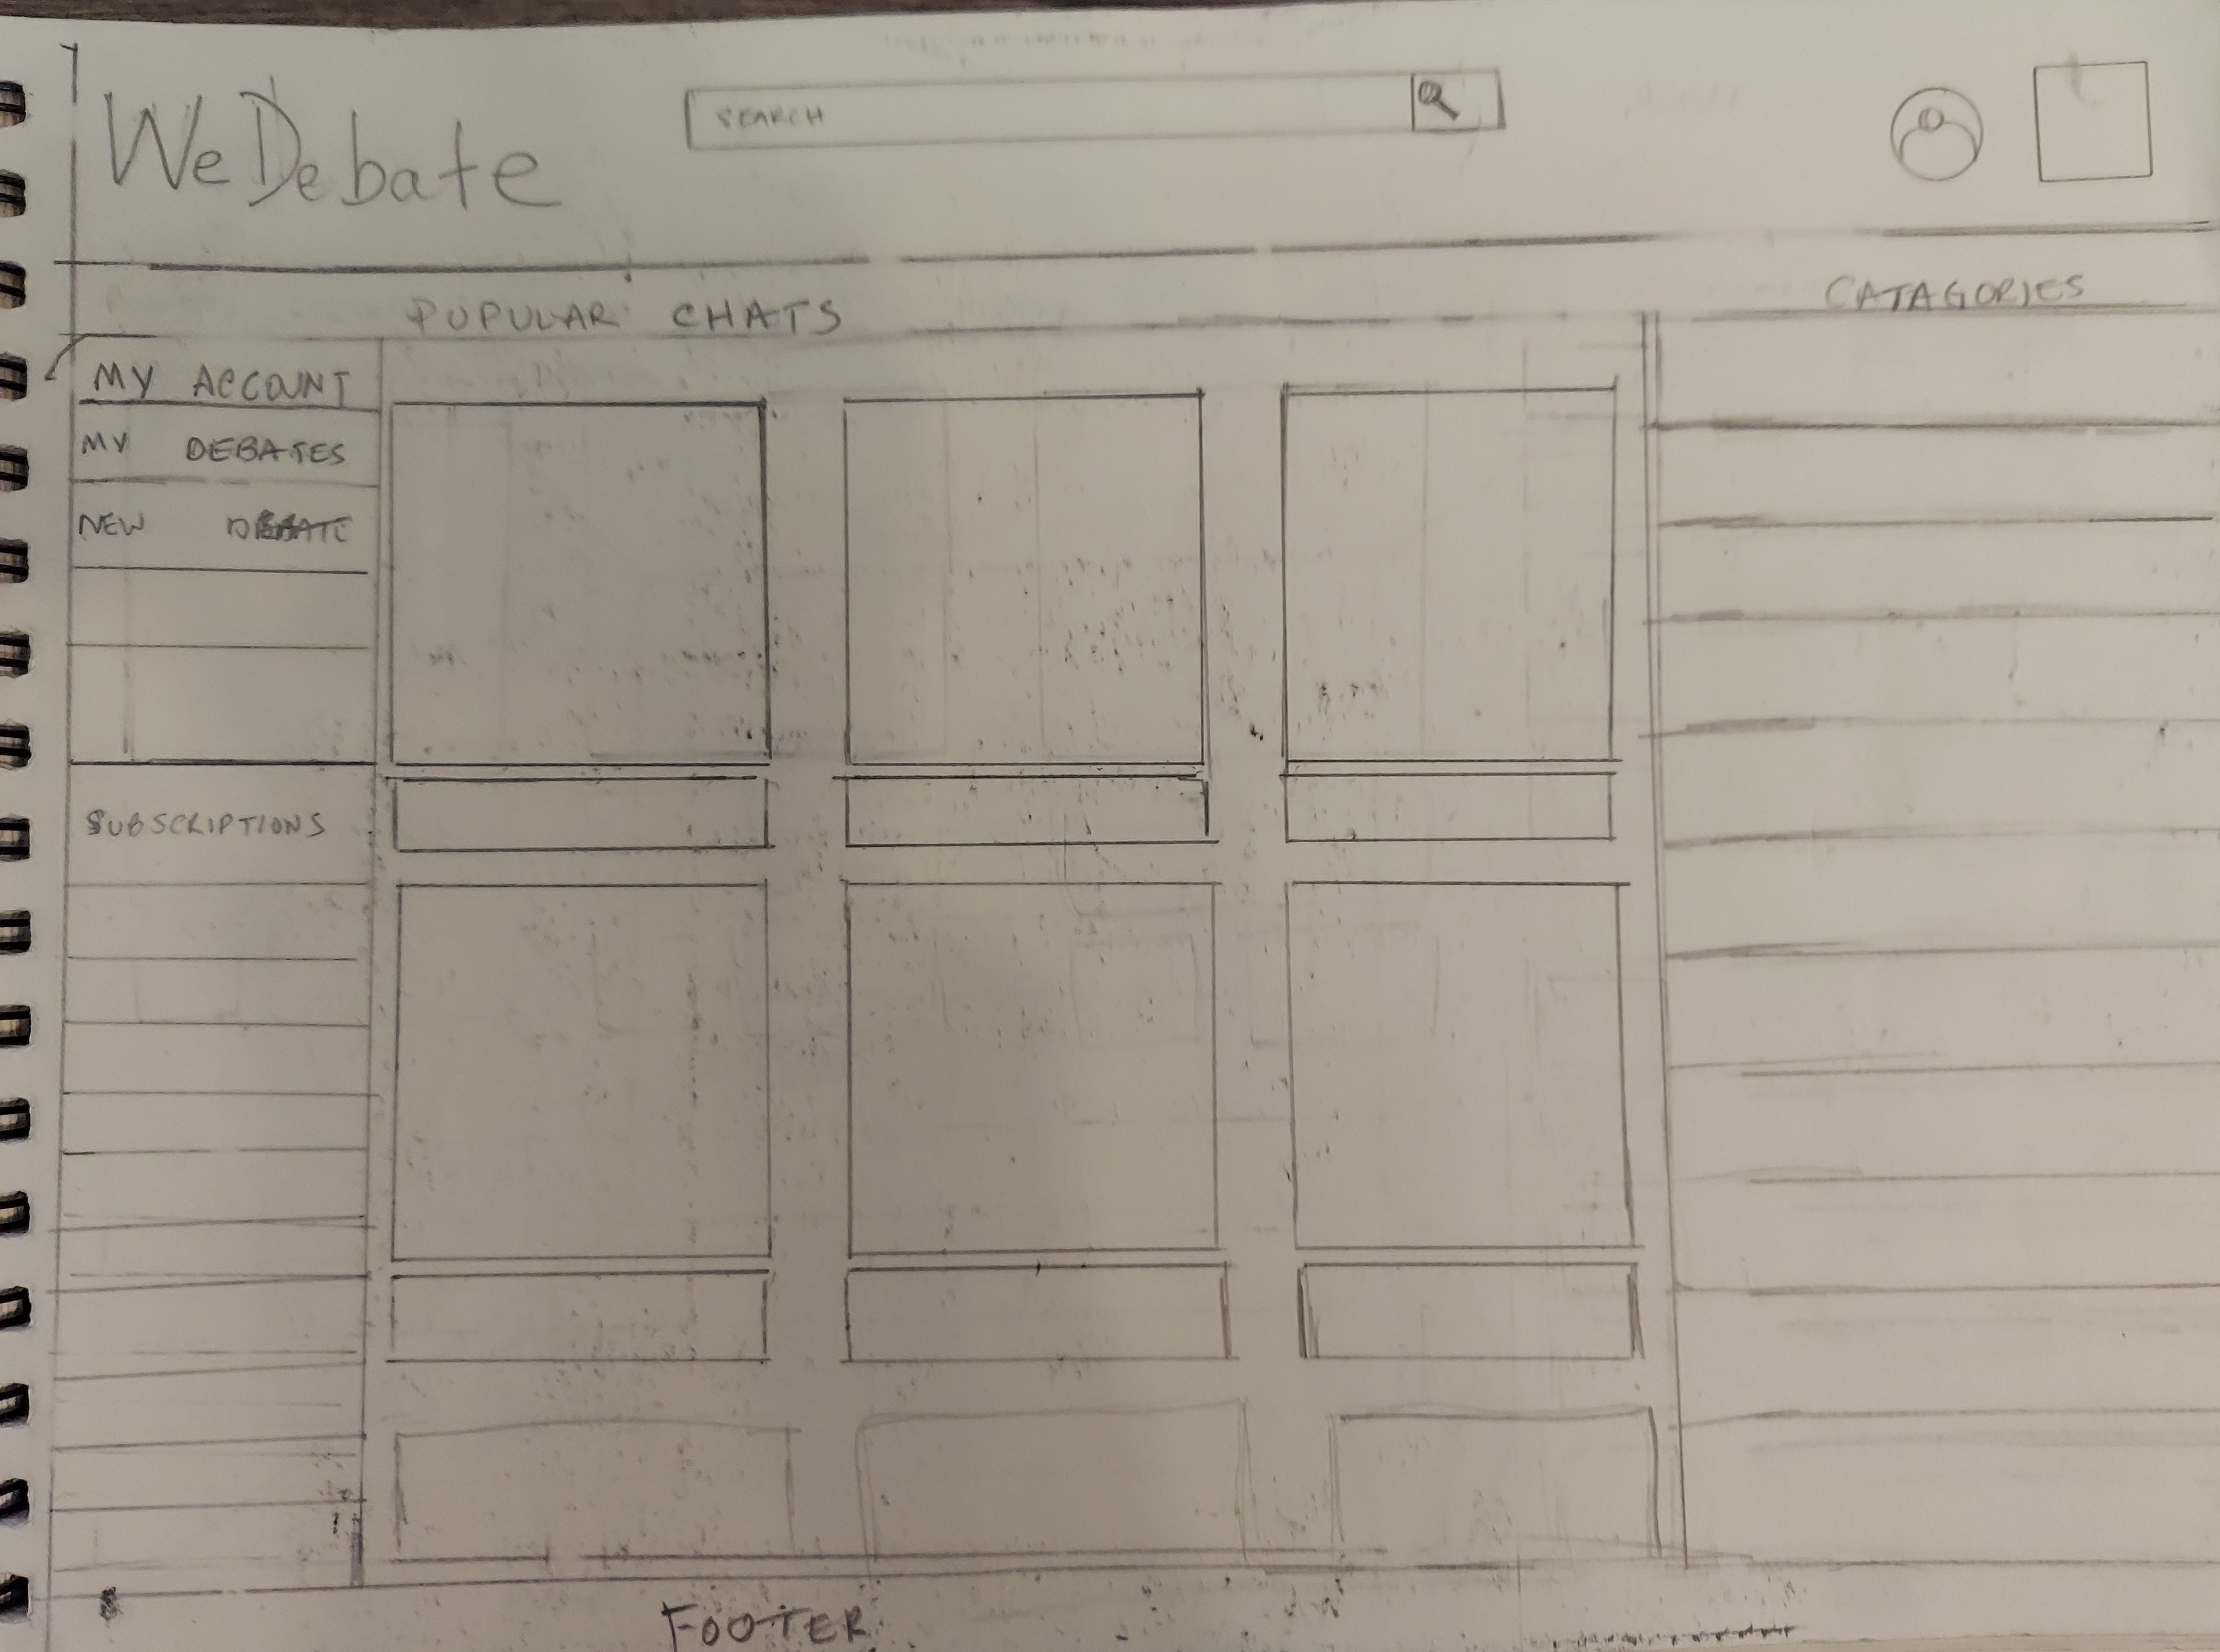 WeDebate
SEARCH
POPULAR CHATS
CATAGORIES
MY ACCOUNT
MY DEBATES
NEW DEBATE
SUBSCRIPTIONS
FOOTER